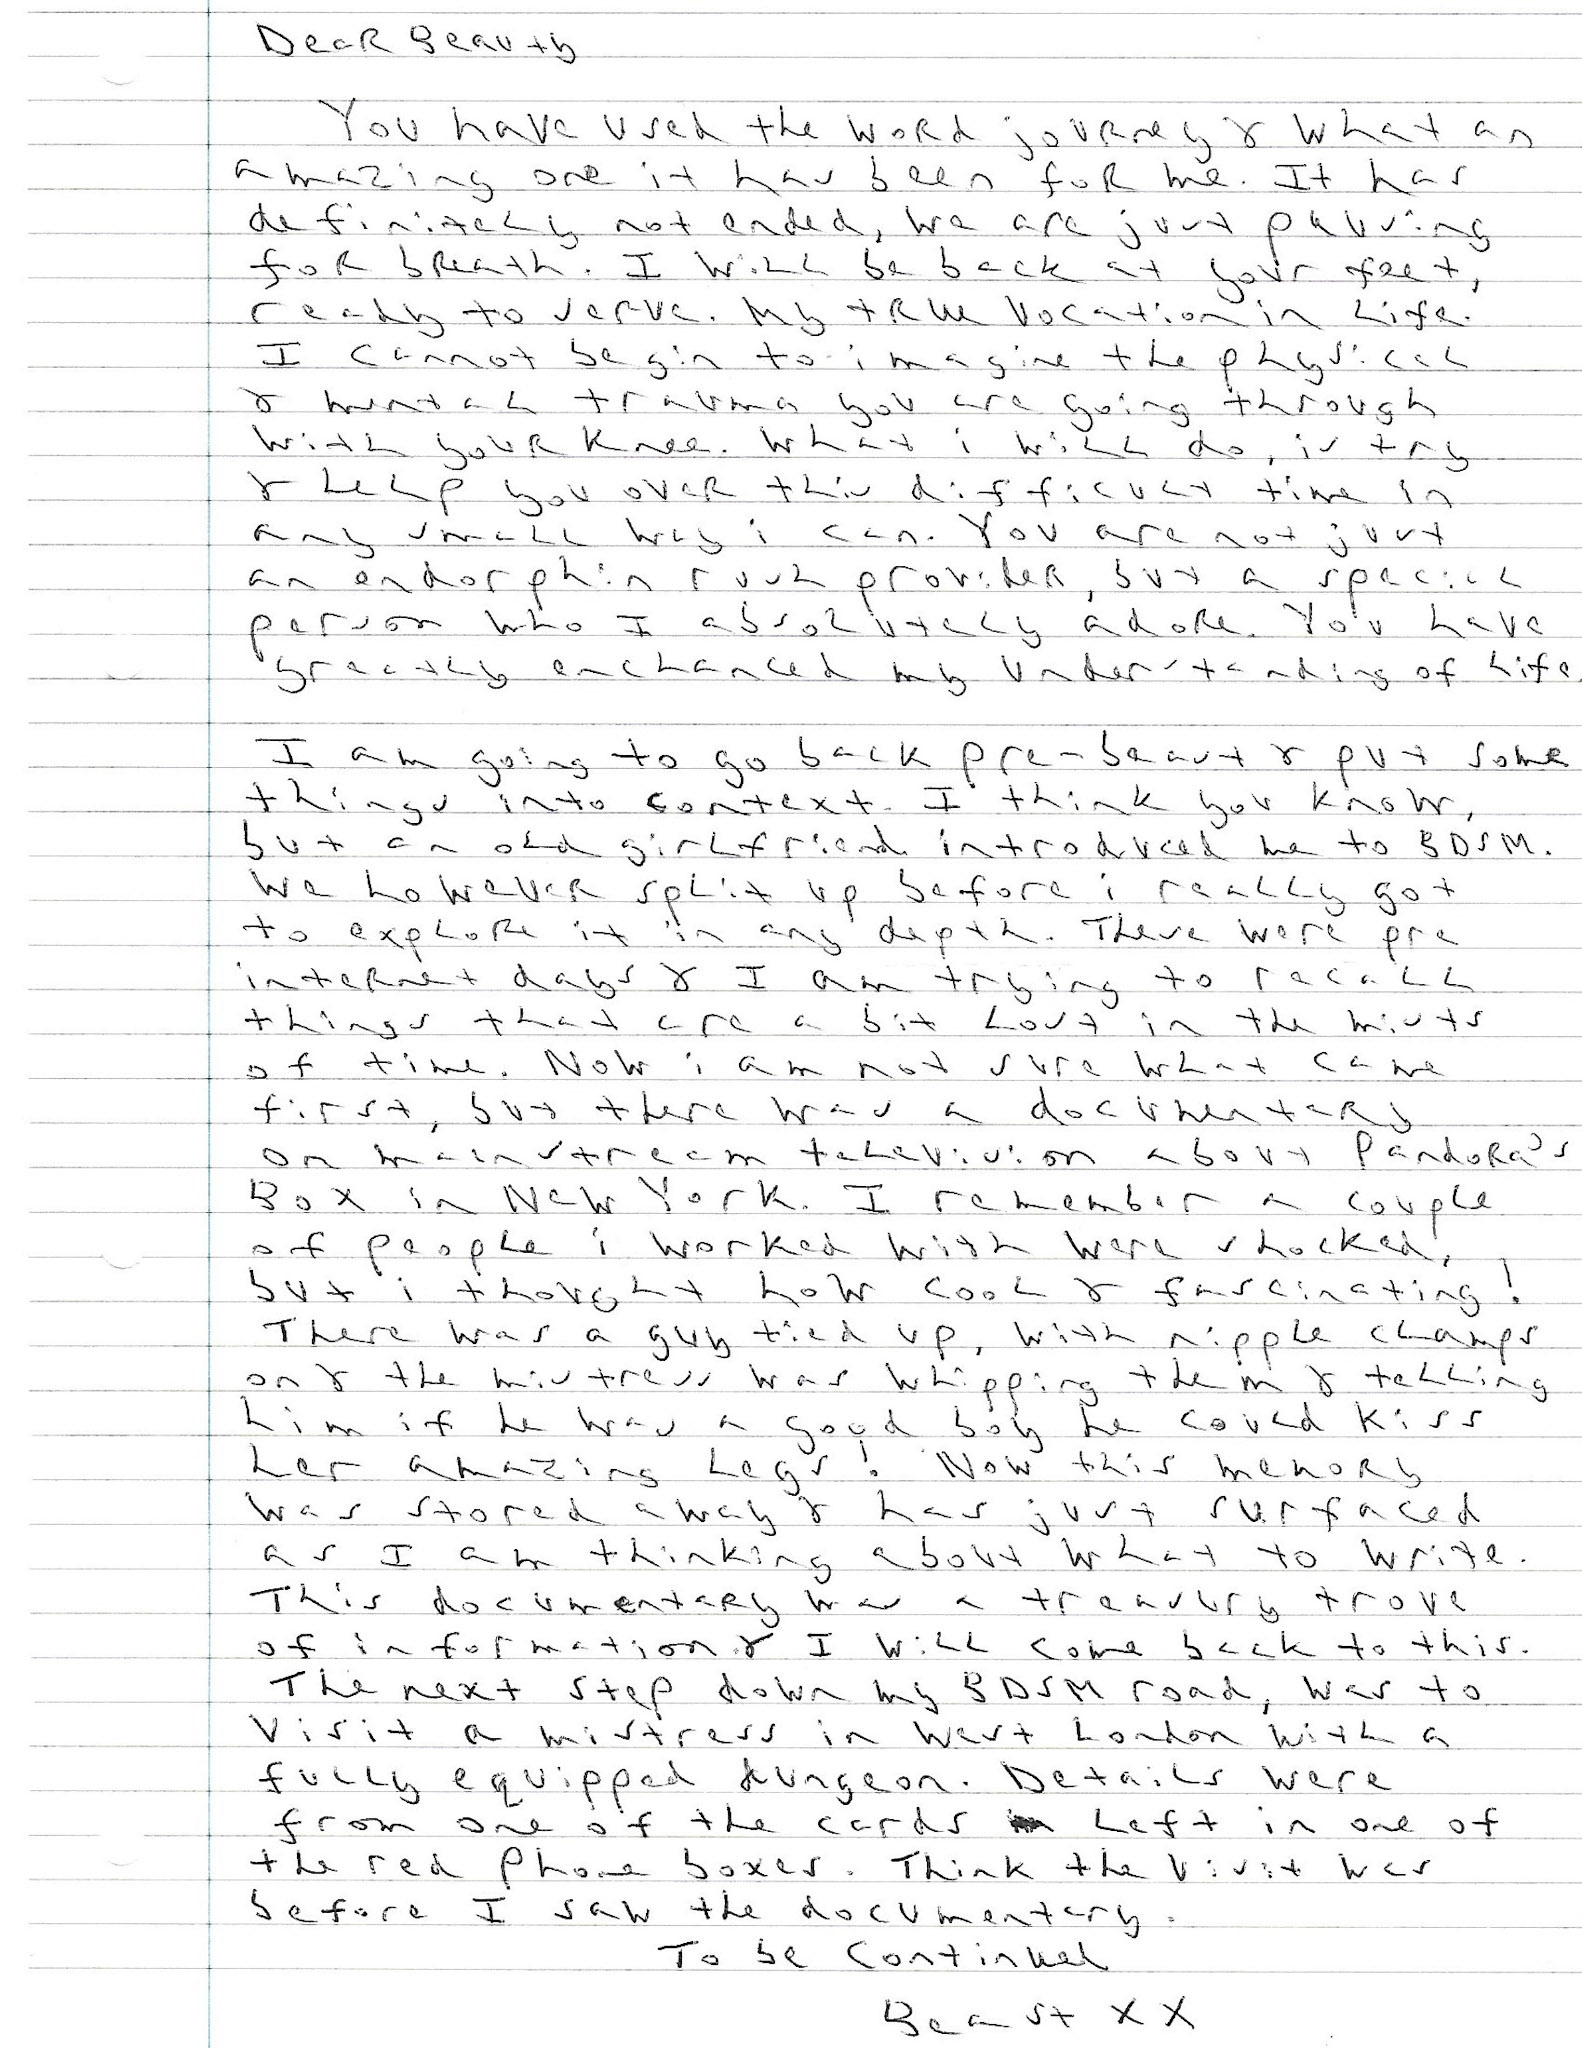 Dear Beauty
You have used the word journey & what an
amazing one it has been for me. It has
definitely not ended, we are just pausing
for breath. I will be back at your feet,
ready to serve. My true vocation in life.
I cannot begin to imagine the physical
& mental trauma you are going through
with your knee. What i will do, is try
& help you over this difficult time in
any small way i can. You are not just
an endorphin rush provider, but a special
person who I absolutely adore. You have
greatly enchanced my understanding of life.
I am going to go back pre-beaut & put some
things into context. I think you know,
but an old girlfriend introduced me to BDSM.
We however split up before i really got
to explore it in any depth. These were pre
internet days & I am trying to recall
things that are a bit lost in the mists
of time. Now i am not sure what came
first, but there was a documentary
on mainstream television about Pandora's
Box in New York. I remember a couple
of people i worked with were shocked,
but i thought how cool & fascinating!
There was a guy tied up, with nipple clamps
on & the mistress was whipping them & telling
him if he was a good boy he could kiss
her amazing legs! Now this memory
was stored away & has just surfaced
as I am thinking about what to write.
This documentary was a treasury trove
of information & I will come back to this.
The next step down my BDSM road, was to
visit a mistress in West London with a
fully equipped dungeon. Details were
from one of the cards left in one of
the red phone boxes. Think the visit was
before I saw the documentary.
To be continued
Beast XX